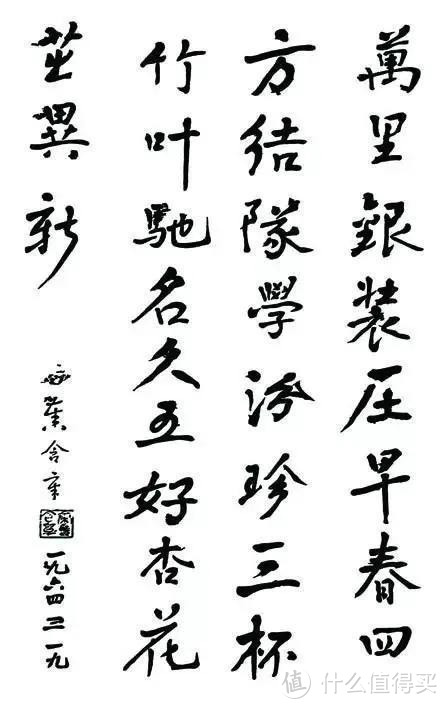 萬里銀装圧早春四
方結隊學汾珍三杯
竹叶馳名久五好杏花
茁異新
含章
一九六四三一九
值 什么值得买